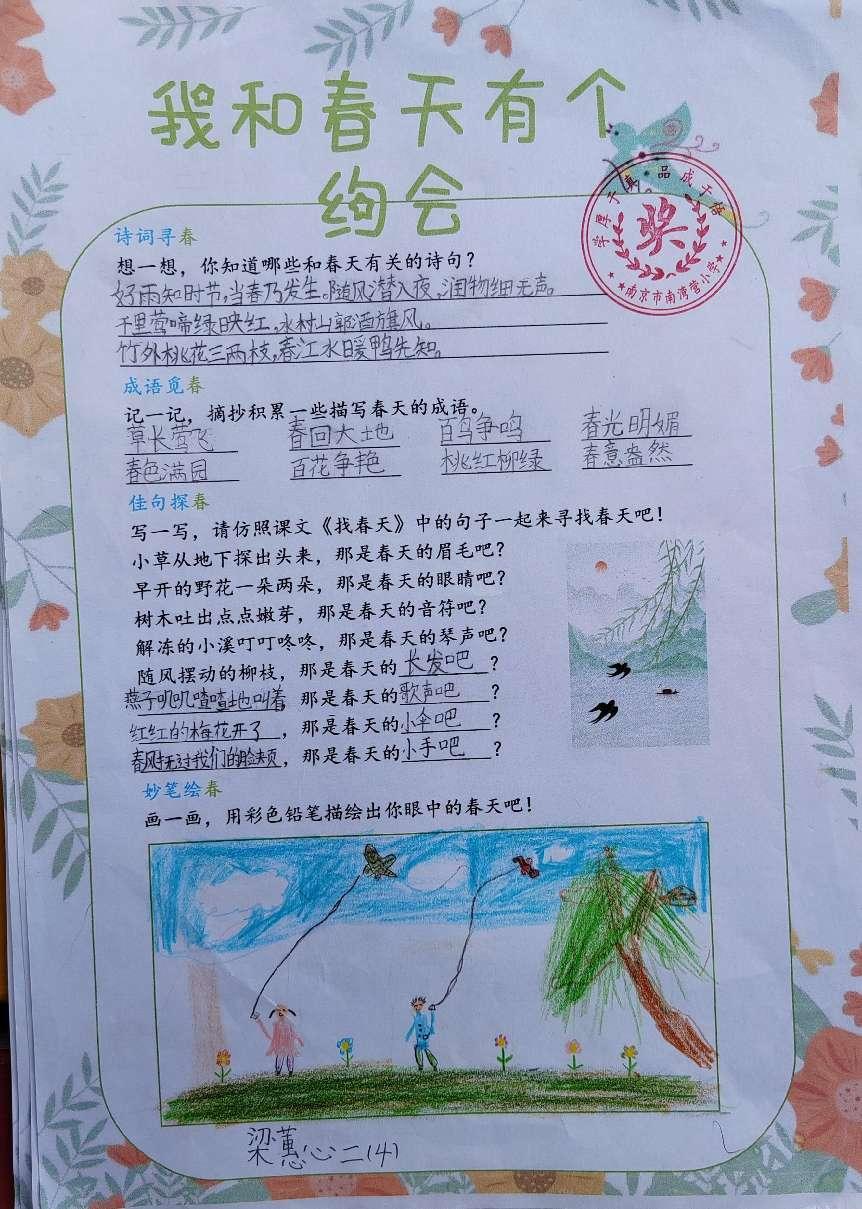 我和春天有个
约会
学厚于真 品成于恪
奖
★★★南京市南湾营小学★★★
诗词寻春
想一想，你知道哪些和春天有关的诗句？
好雨知时节，当春乃发生。随风潜入夜，润物细无声。
千里莺啼绿映红，水村山郭酒旗风。
竹外桃花三两枝，春江水暖鸭先知。
成语觅春
记一记，摘抄积累一些描写春天的成语。
草长莺飞 春回大地 百鸟争鸣 春光明媚
春色满园 百花争艳 桃红柳绿 春意盎然
佳句探春
写一写，请仿照课文《找春天》中的句子一起来寻找春天吧！
小草从地下探出头来，那是春天的眉毛吧？
早开的野花一朵两朵，那是春天的眼睛吧？
树木吐出点点嫩芽，那是春天的音符吧？
解冻的小溪叮叮咚咚，那是春天的琴声吧？
随风摆动的柳枝，那是春天的长发吧？
燕子叽叽喳喳地叫着，那是春天的歌声吧？
红红的梅花开了，那是春天的小伞吧？
春风抚过我们的脸颊，那是春天的小手吧？
妙笔绘春
画一画，用彩色铅笔描绘出你眼中的春天吧！
梁蕙心二(4)